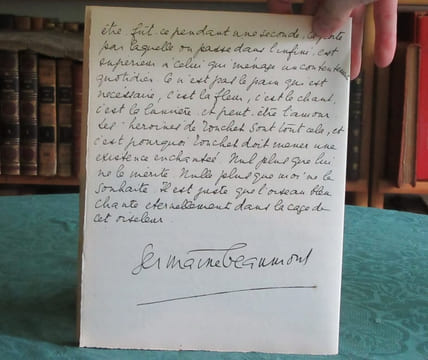 être fût-ce pendant une seconde, la porte
par laquelle on passe dans l'infini est
supérieur à celui qui ménage un contentement
quotidien. Ce n'est pas le pain qui est
nécessaire, c'est la fleur, c'est le chant,
c'est la lumière, et peut-être l'amour.
Les héroïnes de Touchet sont tout cela, et
c'est pourquoi Touchet doit mener une
existence enchantée. Nul plus que lui
ne le mérite. Nulle plus que moi ne le
souhaite. Il est juste que l'oiseau bleu
chante éternellement dans la cage de
cet oiseleur.
Germaine Beaumont